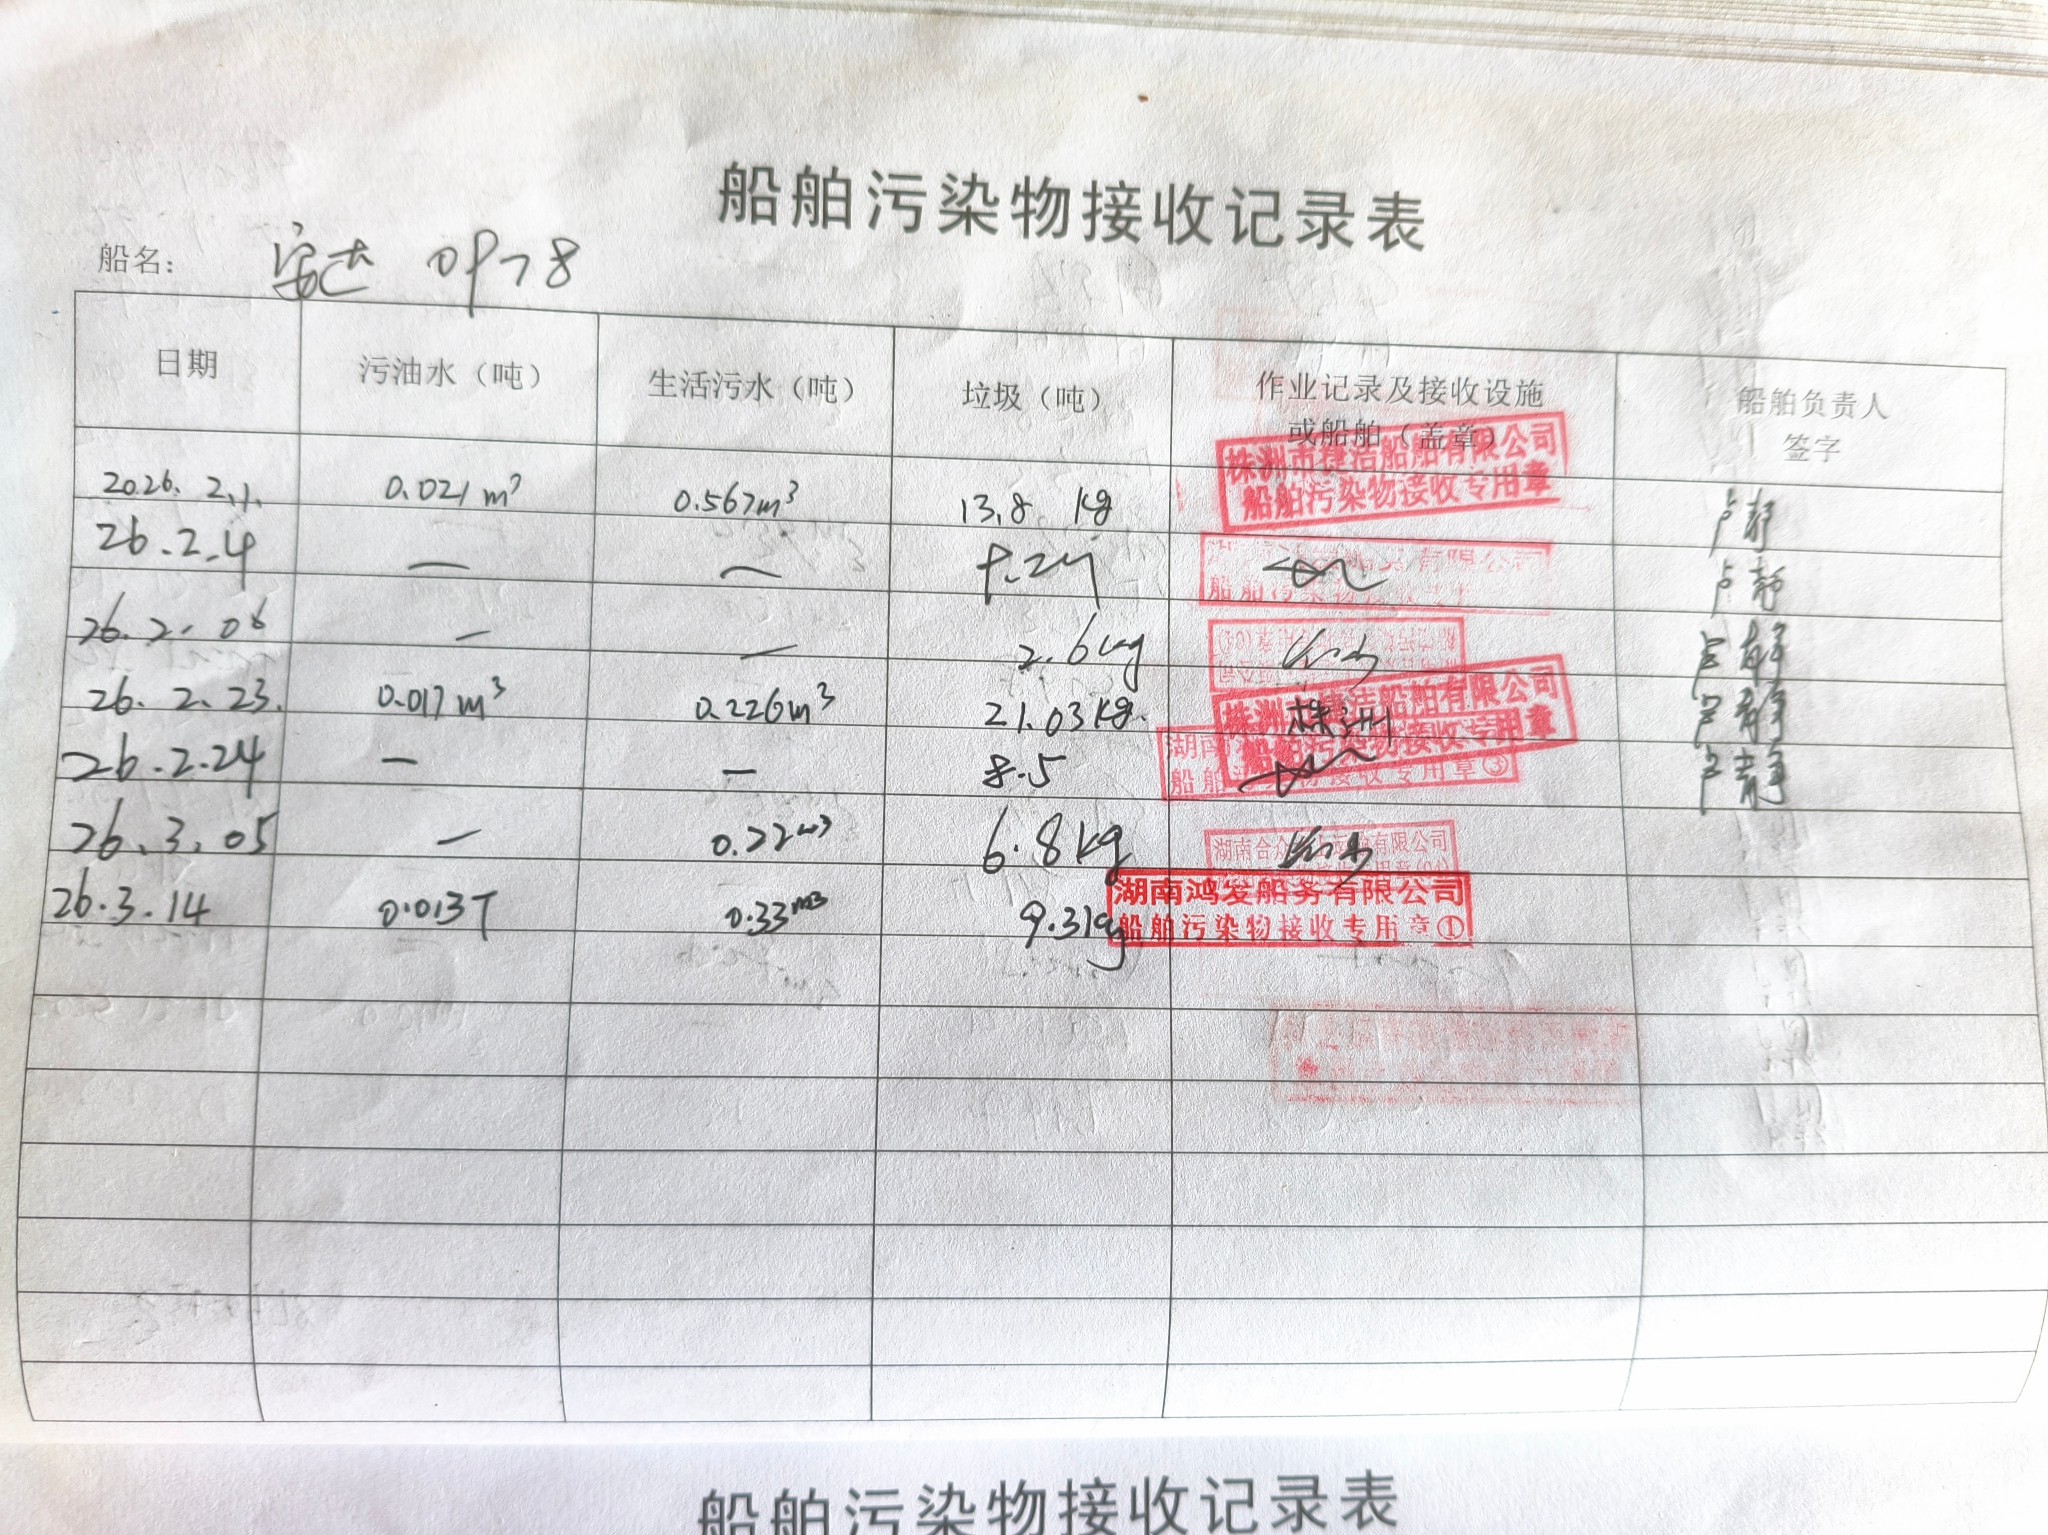 船舶污染物接收记录表
船名： 安达 0978
日期 污油水（吨） 生活污水（吨） 垃圾（吨） 作业记录及接收设施或船舶（盖章） 船舶负责人签字
2026.2.1. 0.021m³ 0.567m³ 13.8 kg 株洲市捷洁船舶有限公司 船舶污染物接收专用章 卢静
26.2.4 — — 有限公司 船舶污染物接收专用 卢静
26.2.06 — — 2.6kg 卢静
26.2.23. 0.017m³ 0.226m³ 21.03kg. 株洲市捷洁船舶有限公司 船舶污染物接收专用章 株洲 卢静
26.2.24 — — 8.5 湖南 船舶污染物接收专用章③ 卢静
26.3.05 — 0.22m³ 6.8kg 湖南合众 有限公司
26.3.14 0.013T 0.33m3 9.3kg 湖南鸿发船务有限公司 船舶污染物接收专用章①
船舶污染物接收记录表